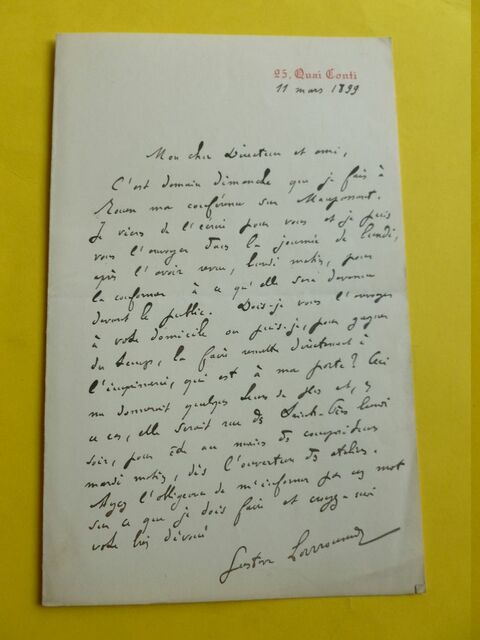 25, Quai Conti
11 mars 1899
Mon cher Directeur et ami,
C'est demain dimanche que je fais à
Rouen ma conférence sur Maupassant.
Je viens de l'écrire pour vous et je puis
vous l'envoyer dans la journée de lundi,
après l'avoir revue, lundi matin, pour
la conformer à ce qu'elle sera devenue
devant le public. Dois-je vous l'envoyer
à votre domicile ou puis-je, pour gagner
du temps, la faire remettre directement à
l'imprimerie, qui est à ma porte? Ceci
me donnerait quelques heures de plus et,
ce cas, elle serait rue des Saints-Pères lundi
soir, pour être aux mains des compositeurs
mardi matin, dès l'ouverture des ateliers.
Ayez l'obligeance de m'informer par un mot
sur ce que je dois faire et croyez-moi
votre bien dévoué
Gustave Larroumet